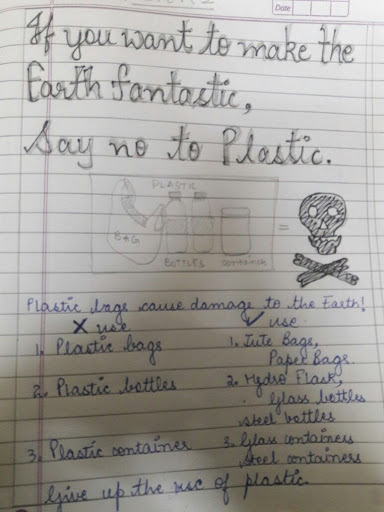 Date
If you want to make the
Earth fantastic,
Say no to Plastic.
PLASTIC
BAG
=
BOTTLES container
Plastic bags cause damage to the Earth!
✗ use ✓ use
1. Plastic bags 1. Jute Bags,
Paper Bags.
2. Plastic bottles 2. Hydro Flask,
Glass bottles
steel bottles
3. Plastic container 3. Glass containers
Steel containers
Give up the use of plastic.